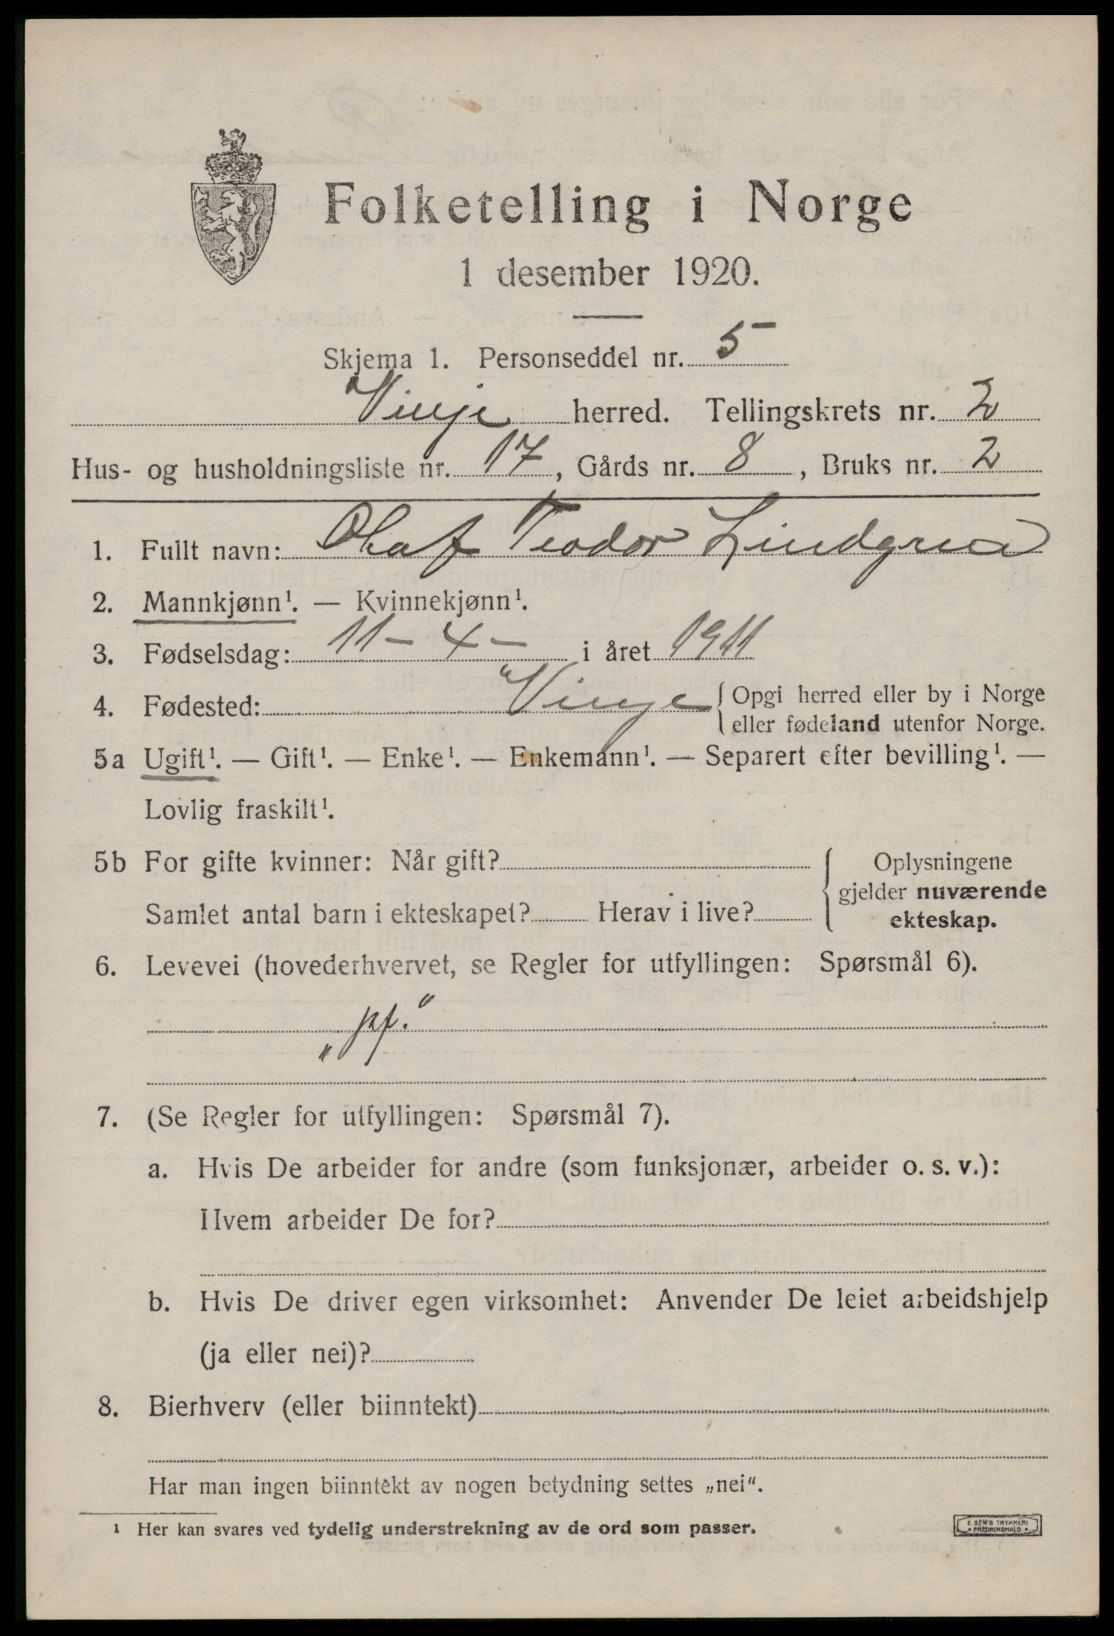 Folketelling i Norge
1 desember 1920.
Skjema 1. Personseddel nr. 5
Vinje herred. Tellingskrets nr. 2
Hus- og husholdningsliste nr. 17, Gårds nr. 8, Bruks nr. 2
1. Fullt navn: Olaf Teodor Lindgren
2. Mannkjønn¹. — Kvinnekjønn¹.
3. Fødselsdag: 11 - 4 - i året 1911
4. Fødested: "Vinje { Opgi herred eller by i Norge
eller fødeland utenfor Norge.
5a Ugift¹. — Gift¹. — Enke¹. — Enkemann¹. — Separert efter bevilling¹. —
Lovlig fraskilt¹.
5b For gifte kvinner: Når gift? { Oplysningene
gjelder nuværende
Samlet antal barn i ekteskapet? Herav i live? ekteskap.
6. Levevei (hovederhvervet, se Regler for utfyllingen: Spørsmål 6).
„pf.“
7. (Se Regler for utfyllingen: Spørsmål 7).
a. Hvis De arbeider for andre (som funksjonær, arbeider o. s. v.):
Hvem arbeider De for?
b. Hvis De driver egen virksomhet: Anvender De leiet arbeidshjelp
(ja eller nei)?
8. Bierhverv (eller biinntekt)
Har man ingen biinntekt av nogen betydning settes „nei“.
¹ Her kan svares ved tydelig understrekning av de ord som passer.
E. SEM'S TRYKKERI
FREDRIKSHALD